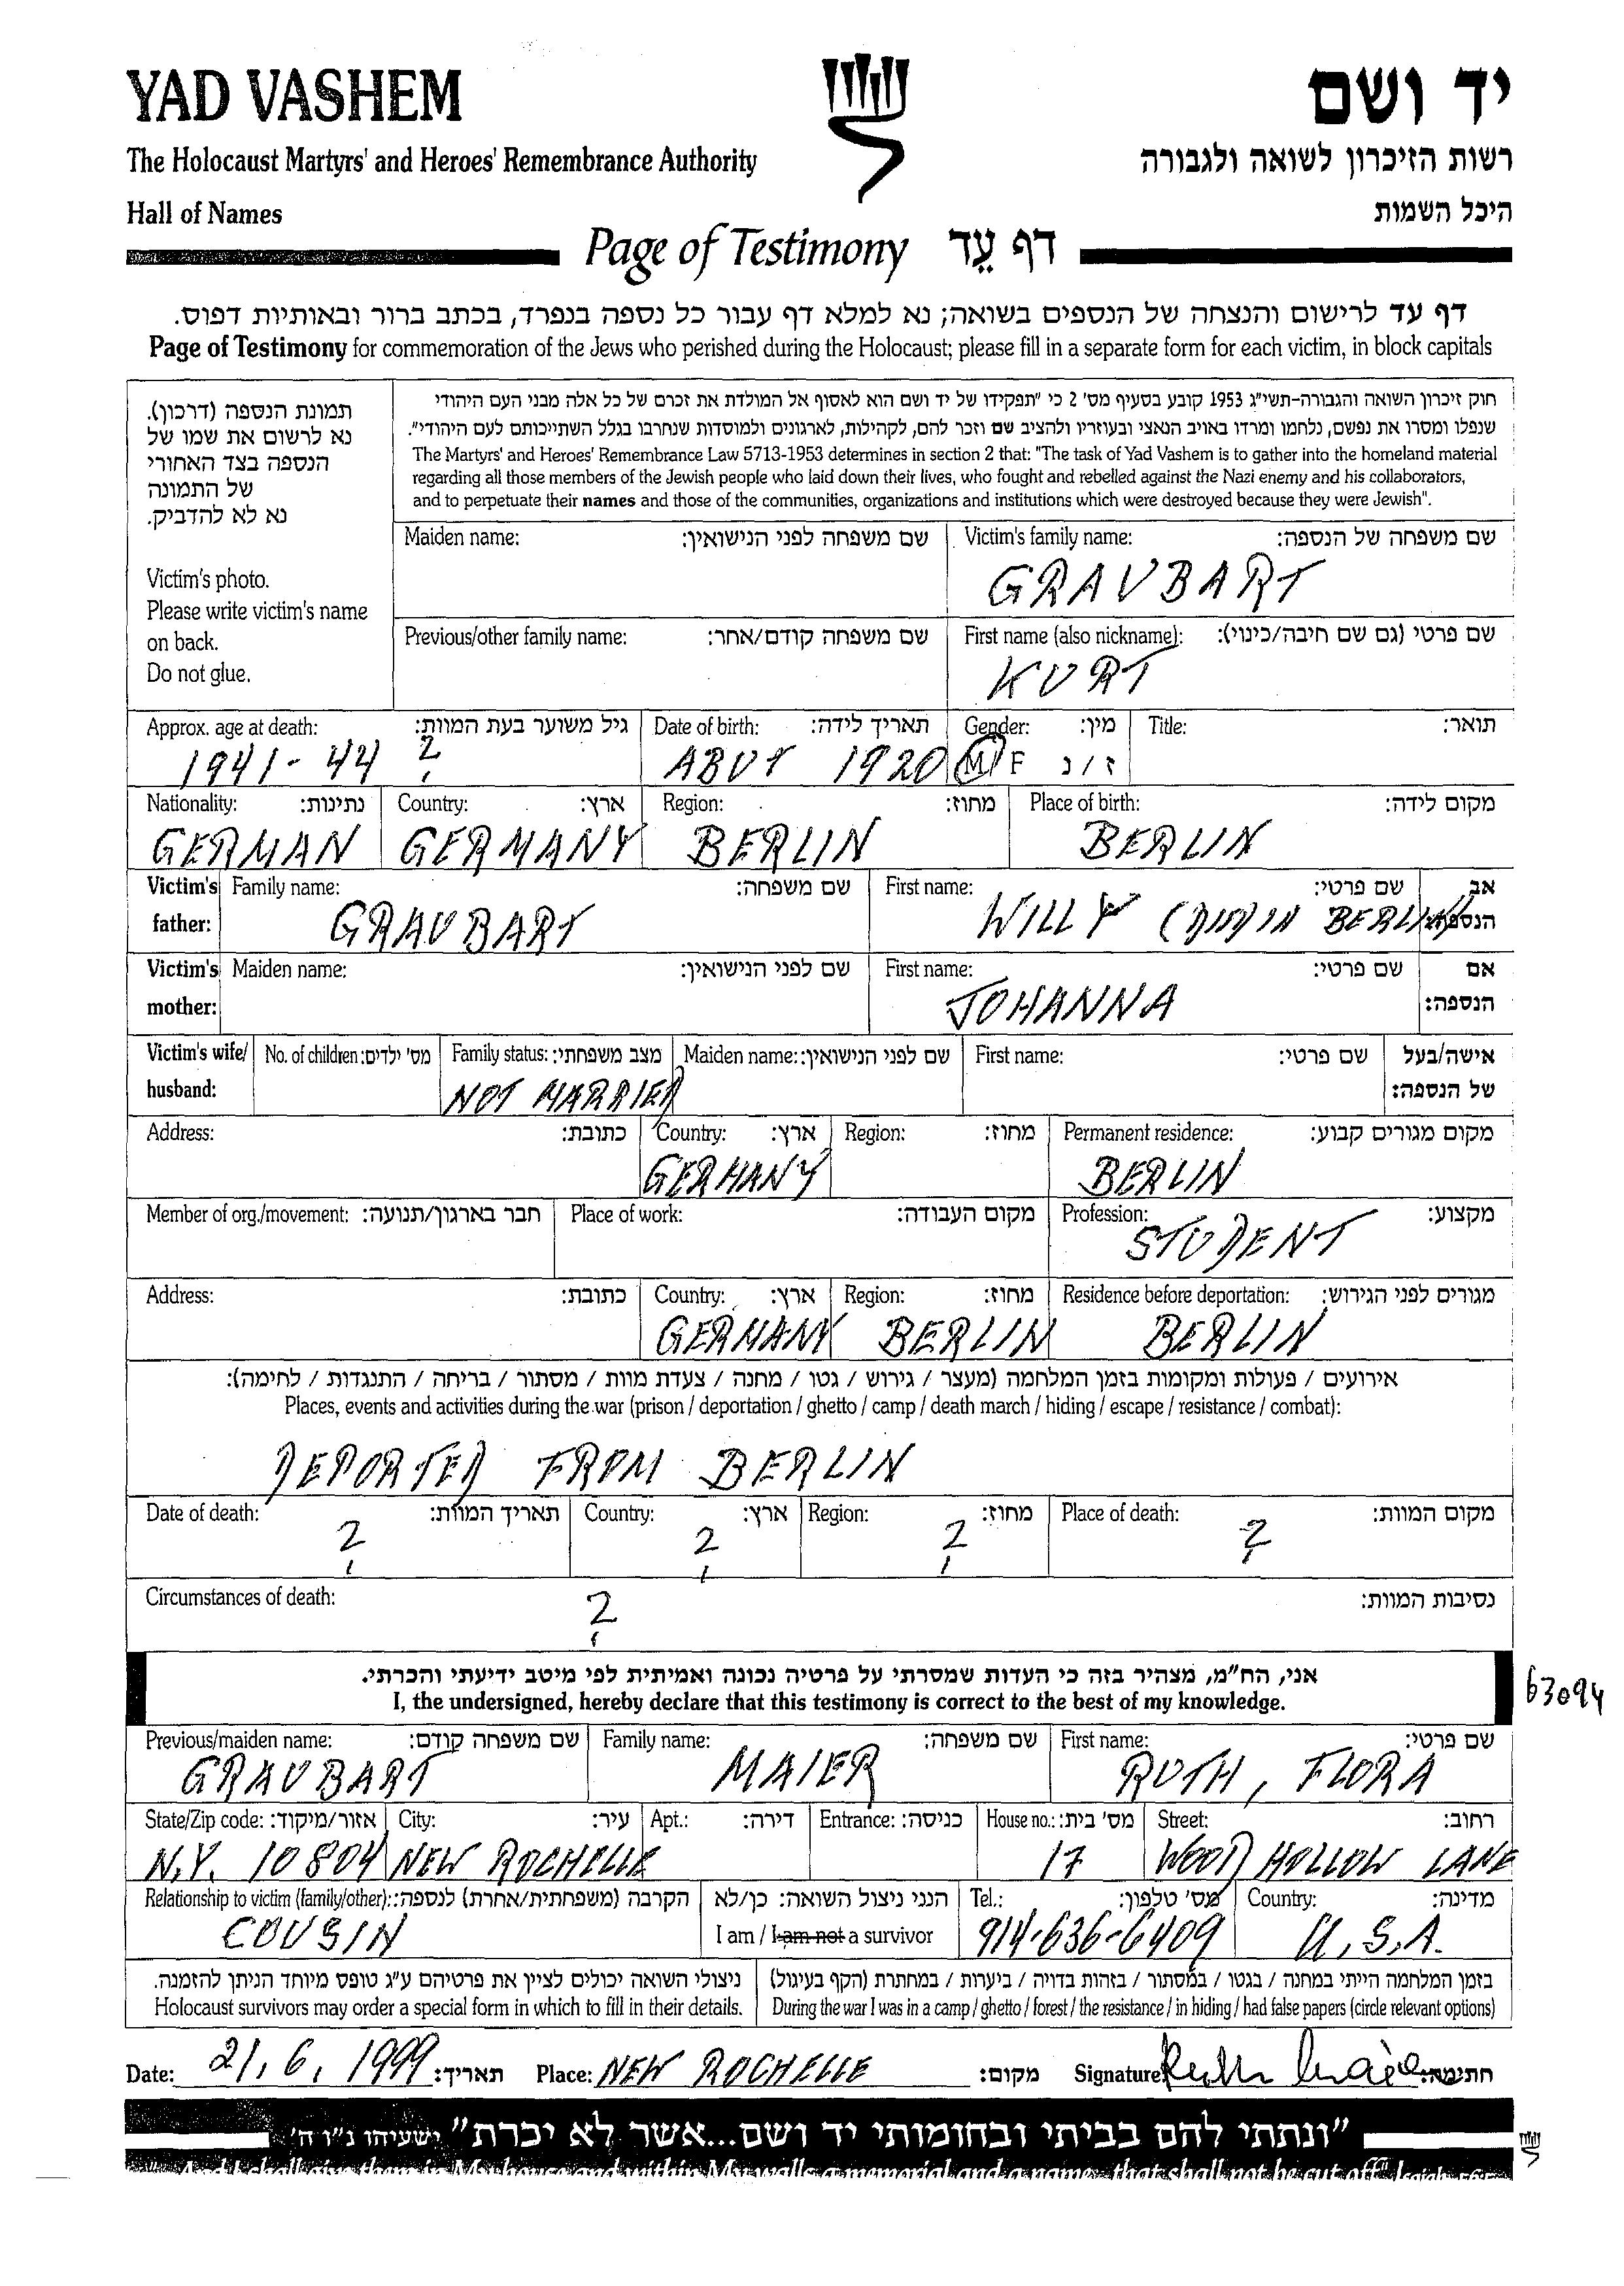 YAD VASHEM
יד ושם
The Holocaust Martyrs' and Heroes' Remembrance Authority
רשות הזיכרון לשואה ולגבורה
Hall of Names
היכל השמות
Page of Testimony דף עֵד
דף עד לרישום והנצחה של הנספים בשואה; נא למלא דף עבור כל נספה בנפרד, בכתב ברור ובאותיות דפוס.
Page of Testimony for commemoration of the Jews who perished during the Holocaust; please fill in a separate form for each victim, in block capitals
תמונת הנספה (דרכון).
נא לרשום את שמו של
הנספה בצד האחורי
של התמונה
נא לא להדביק.
Victim's photo.
Please write victim's name
on back.
Do not glue.
חוק זיכרון השואה והגבורה-תשי"ג 1953 קובע בסעיף מס' 2 כי "תפקידו של יד ושם הוא לאסוף אל המולדת את זכרם של כל אלה מבני העם היהודי
שנפלו ומסרו את נפשם, נלחמו ומרדו באויב הנאצי ובעוזריו ולהציב שם וזכר להם, לקהילות, לארגונים ולמוסדות שנחרבו בגלל השתייכותם לעם היהודי".
The Martyrs' and Heroes' Remembrance Law 5713-1953 determines in section 2 that: "The task of Yad Vashem is to gather into the homeland material
regarding all those members of the Jewish people who laid down their lives, who fought and rebelled against the Nazi enemy and his collaborators,
and to perpetuate their names and those of the communities, organizations and institutions which were destroyed because they were Jewish".
Maiden name: שם משפחה לפני הנישואין: Victim's family name: שם משפחה של הנספה:
GRAUBART
Previous/other family name: שם משפחה קודם/אחר: First name (also nickname): שם פרטי (גם שם חיבה/כינוי):
KURT
Approx. age at death: גיל משוער בעת המוות: Date of birth: תאריך לידה: Gender: מין: Title: תואר:
1941-44 ? ABUT 1920 M/F ז/נ
Nationality: נתינות: Country: ארץ: Region: מחוז: Place of birth: מקום לידה:
GERMAN GERMANY BERLIN BERLIN
Victim's father: Family name: שם משפחה: First name: שם פרטי: אב הנספה:
GRAUBART WILLY (DID IN BERLIN)
Victim's mother: Maiden name: שם לפני הנישואין: First name: שם פרטי: אם הנספה:
JOHANNA
Victim's wife/ husband: No. of children: מס' ילדים: Family status: מצב משפחתי: Maiden name: שם לפני הנישואין: First name: שם פרטי: אישה/בעל של הנספה:
NOT MARRIED
Address: כתובת: Country: ארץ: Region: מחוז: Permanent residence: מקום מגורים קבוע:
GERMANY BERLIN
Member of org./movement: חבר בארגון/תנועה: Place of work: מקום העבודה: Profession: מקצוע:
STUDENT
Address: כתובת: Country: ארץ: Region: מחוז: Residence before deportation: מגורים לפני הגירוש:
GERMANY BERLIN BERLIN
אירועים / פעולות ומקומות בזמן המלחמה (מעצר / גירוש / גטו / מחנה / צעדת מוות / מסתור / בריחה / התנגדות / לחימה):
Places, events and activities during the war (prison / deportation / ghetto / camp / death march / hiding / escape / resistance / combat):
DEPORTED FROM BERLIN
Date of death: תאריך המוות: Country: ארץ: Region: מחוז: Place of death: מקום המוות:
? ? ? ?
Circumstances of death: נסיבות המוות:
?
אני, הח"מ, מצהיר בזה כי העדות שמסרתי על פרטיה נכונה ואמיתית לפי מיטב ידיעתי והכרתי.
I, the undersigned, hereby declare that this testimony is correct to the best of my knowledge.
63094
Previous/maiden name: שם משפחה קודם: Family name: שם משפחה: First name: שם פרטי:
GRAUBART MAIER RUTH, FLORA
State/Zip code: אזור/מיקוד: City: עיר: Apt.: דירה: Entrance: כניסה: House no.: מס' בית: Street: רחוב:
N.Y. 10804 NEW ROCHELLE 17 WOOD HOLLOW LANE
Relationship to victim (family/other): הקרבה (משפחתית/אחרת) לנספה: הנני ניצול השואה: כן/לא Tel.: מס' טלפון: Country: מדינה:
COUSIN I am / I am not a survivor 914-636-6409 U.S.A.
ניצולי השואה יכולים לציין את פרטיהם ע"ג טופס מיוחד הניתן להזמנה. בזמן המלחמה הייתי במחנה / בגטו / במסתור / בזהות בדויה / ביערות / במחתרת (הקף בעיגול)
Holocaust survivors may order a special form in which to fill in their details. During the war I was in a camp / ghetto / forest / the resistance / in hiding / had false papers (circle relevant options)
Date: 21.6.1999 תאריך: Place: NEW ROCHELLE מקום: Signature: Ruth Maier חתימה:
"ונתתי להם בביתי ובחומותי יד ושם...אשר לא יכרת" ישעיהו נ"ו ה'
"And I shall give them in My house and within My walls a memorial and a name...that shall not be cut off" Isaiah 56:5